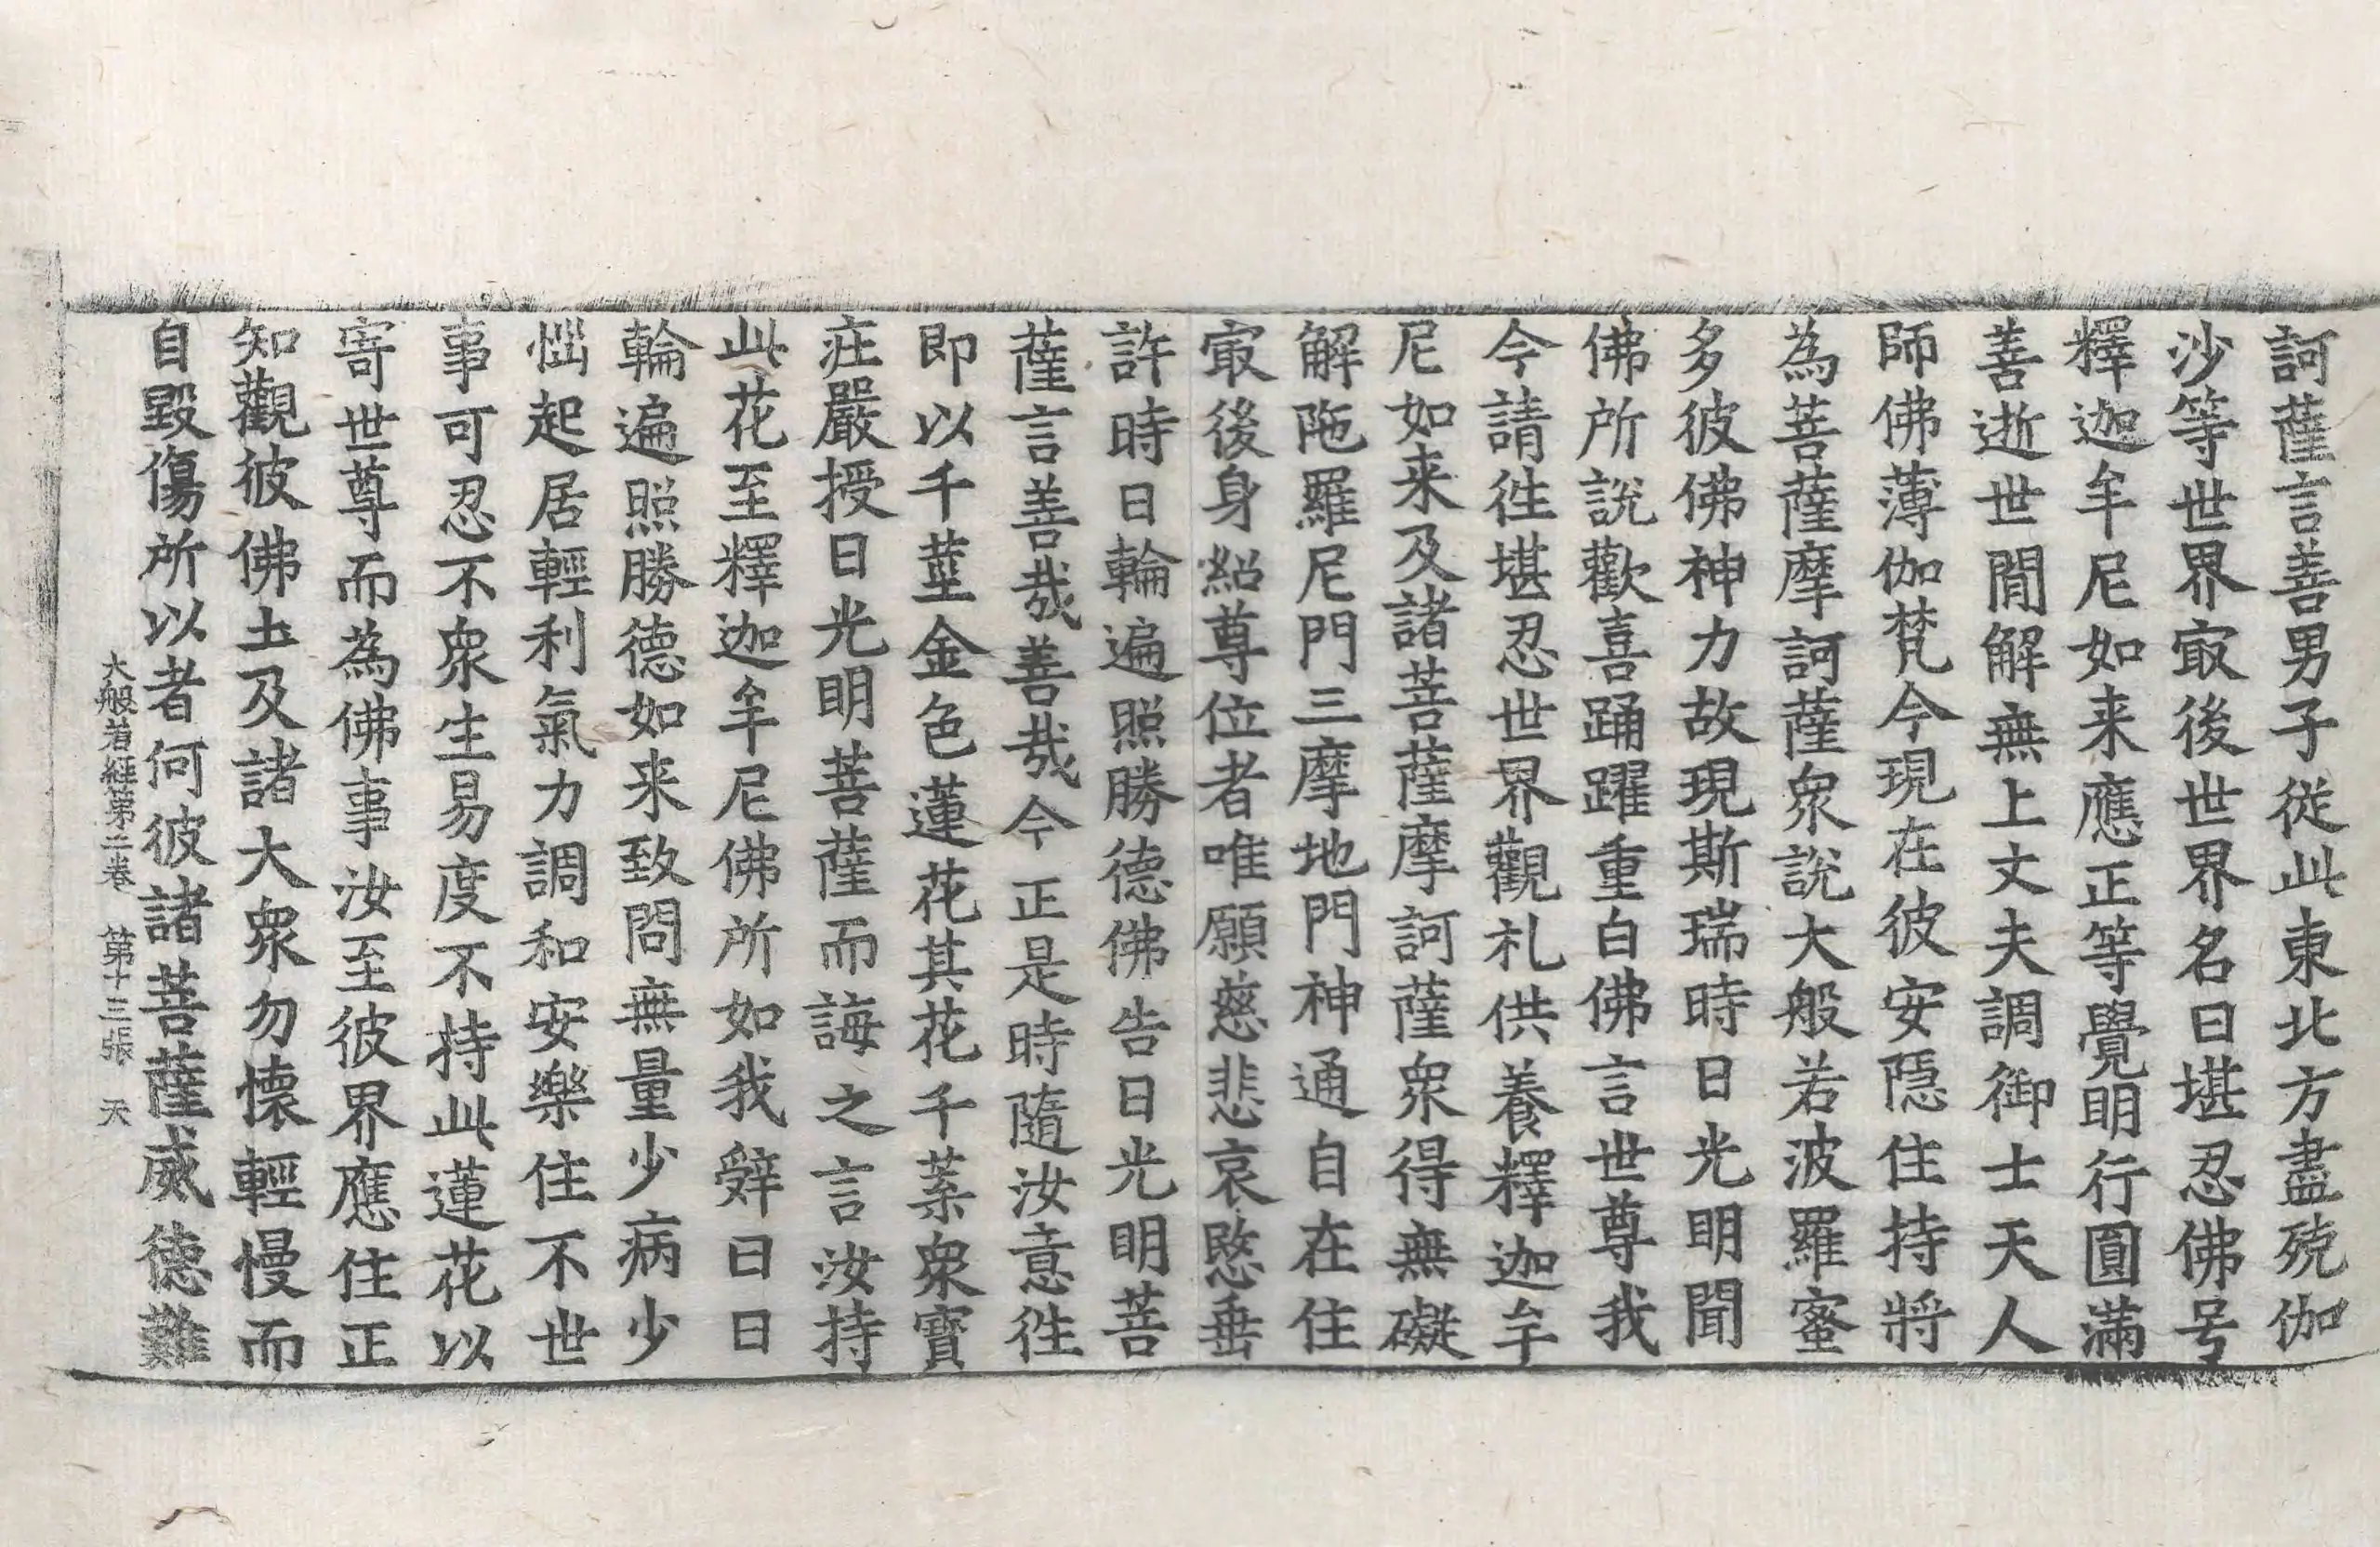 訶薩言善男子從此東北方盡殑伽
沙等世界㝡後世界名曰堪忍佛号
釋迦牟尼如来應正等覺明行圓滿
善逝世閒解無上丈夫調御士天人
師佛薄伽梵今現在彼安隱住持將
為菩薩摩訶薩衆說大般若波羅蜜
多彼佛神力故現斯瑞時日光明聞
佛所說歡喜踊躍重白佛言世尊我
今請徃堪忍世界觀礼供養釋迦牟
尼如来及諸菩薩摩訶薩衆得無礙
解陁羅尼門三摩地門神通自在住
㝡後身紹尊位者唯願慈悲哀愍垂
許時日輪遍照勝德佛告日光明菩
薩言善哉善哉今正是時隨汝意徃
即以千莖金色蓮花其花千葉衆寶
莊嚴授日光明菩薩而誨之言汝持
此花至釋迦牟尼佛所如我辤曰日
輪遍照勝德如来致問無量少病少
惱起居輕利氣力調和安樂住不世
事可忍不衆生易度不持此蓮花以
寄世尊而為佛事汝至彼界應住正
知觀彼佛土及諸大衆勿懷輕慢而
自毀傷所以者何彼諸菩薩威德難
大般若経第二卷 第十三張 天